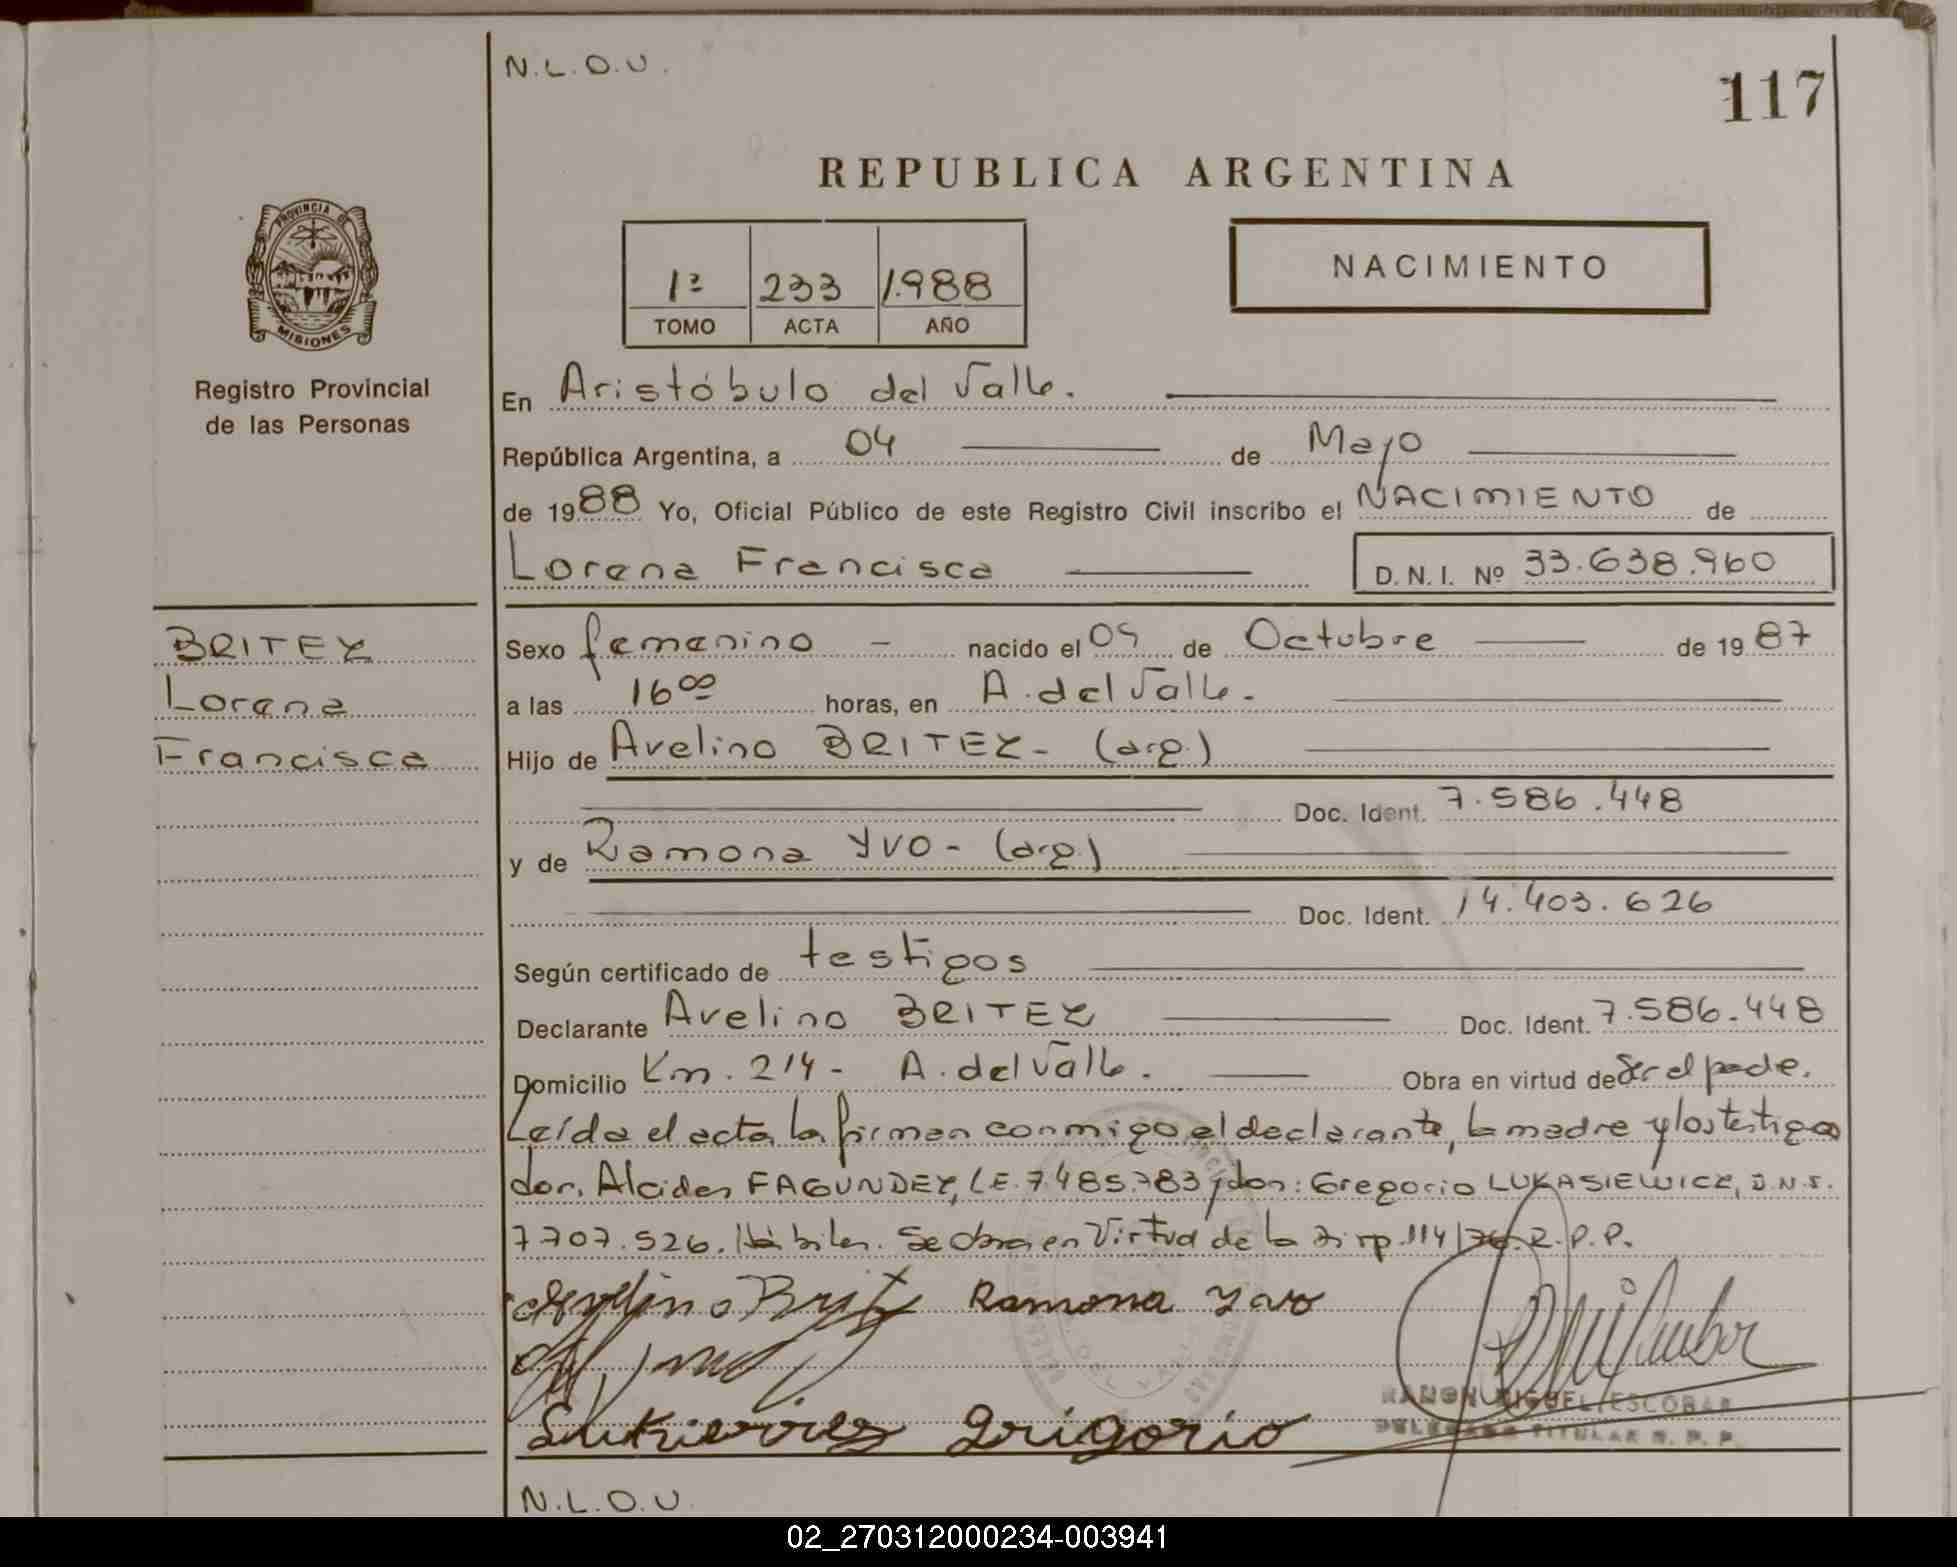 N.L.O.U.
117
REPUBLICA ARGENTINA
PROVINCIA DE
MISIONES
Registro Provincial
de las Personas
1º 233 1.988
TOMO ACTA AÑO
NACIMIENTO
En Aristóbulo del Valle.
República Argentina, a 04 de Mayo
de 1988 Yo, Oficial Público de este Registro Civil inscribo el NACIMIENTO de
Lorena Francisca D.N.I. Nº 33.638.960
BRITEZ
Lorena
Francisca
Sexo femenino - nacido el de Octubre de 1987
a las 16 00 horas, en A. del Valle.
Hijo de Avelino BRITEZ - (arg.)
Doc. Ident. 7.586.448
y de Ramona YVO - (arg.)
Doc. Ident. 14.403.626
Según certificado de testigos
Declarante Avelino BRITEZ Doc. Ident. 7.586.448
Domicilio Km. 214 - A. del Valle. Obra en virtud de Ser el padre.
Leída el acta la firman conmigo el declarante, la madre y los testigos
don. Alcides FAGUNDEZ, L.E. 7.485.783 y don: Gregorio LUKASIEWICZ, D.N.I.
7.707.526. Hábiles. Se obra en Virtud de la Disp. 114/76. R.P.P.
Avelino Britez Ramona Yvo
Grigorio
RAMON MIGUEL ESCOBAR
DELEGADO TITULAR R.P.P.
N.L.O.U.
02_270312000234-003941